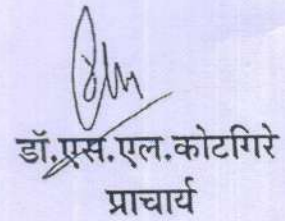 डॉ.एस.एल.कोटगिरे
प्राचार्य